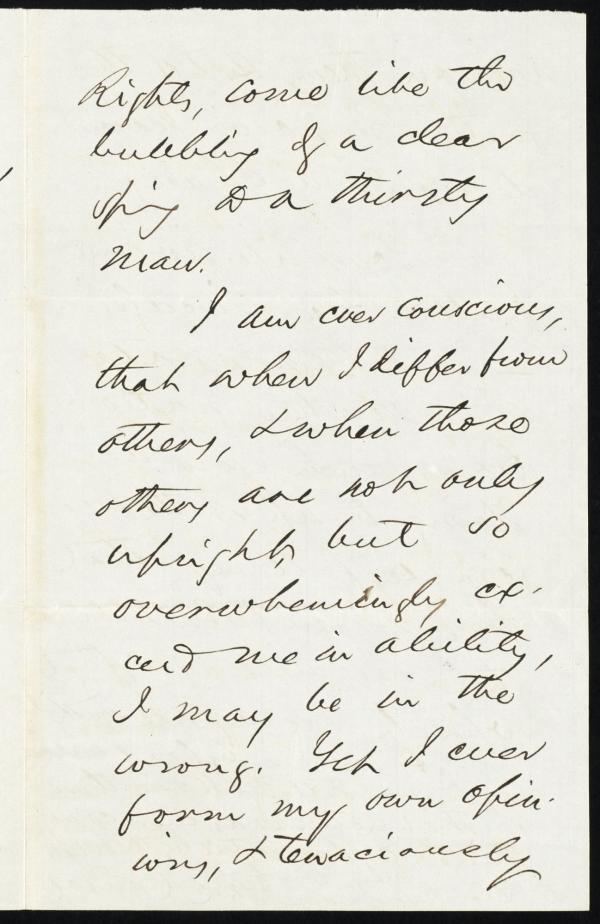 Rights, come like the
bubbling of a clear
spring to a thirsty
man.
I am ever conscious,
that when I differ from
others, & when those
others are not only
upright, but so
overwhelmingly ex-
ceed me in ability,
I may be in the
wrong. Yet I ever
form my own opin-
ions, & tenaciously